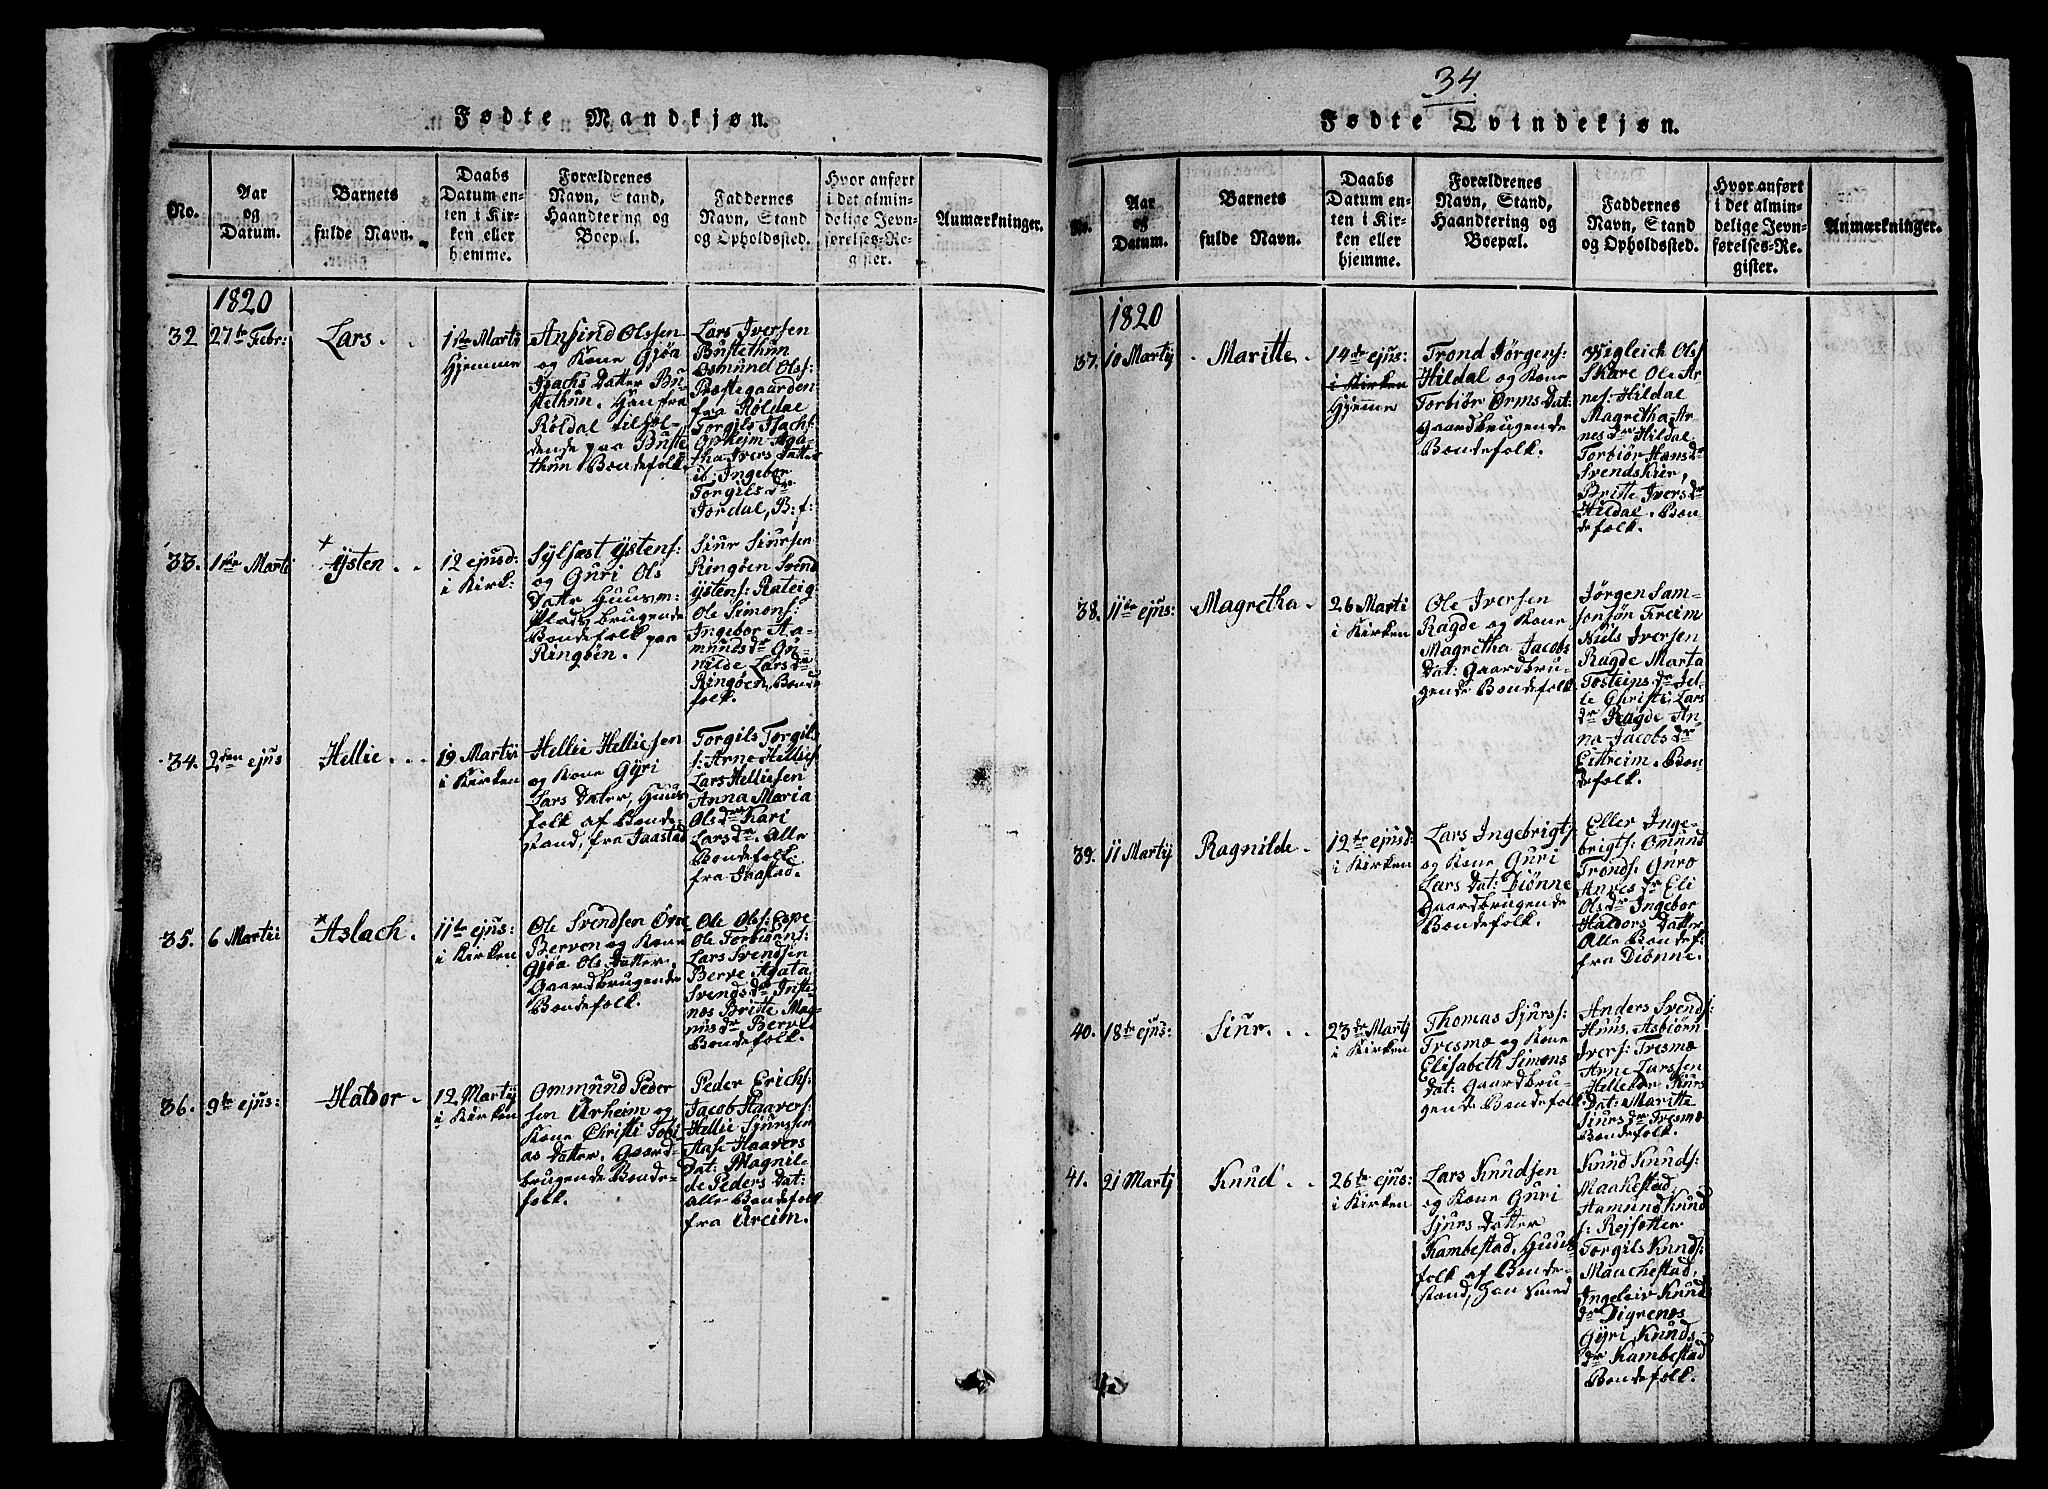 Fødte Mandkjøn.
No.
Aar
og
Datum.
Barnets
fulde Navn.
Daabs
Datum en-
ten i Kir-
ken eller
hjemme.
Forældrenes
Navn, Stand,
Haandtering og
Boepæl.
Faddernes
Navn, Stand
og Opholdssted.
Hvor anført
i det almin-
delige Jevn-
førelses-Re-
gister.
Anmærkninger.
1820
32
27de Febr:
Lars
1ste Marti
Hjemme
Ansind Olssen
og Kone Gjøa
Isachs Datter Bu-
stethun. Han fra
Røldal tilhol-
dende paa Buste
thun Bondefolk
Lars Iversen
Bustethun
Osmund Ols:
Præstegaarden
fra Røldal
Torgils Isachs
Opheim Aga-
tha Ivers Datter
ib. Ingebor
Torgils dr
Jordal, B: f:
33.
1ste Marti
+ Ysten
12 ejusd:
i Kirk:
Sylfæst Ystens:
og Guri Ols
Datte Huusm:
Plads brugende
Bondefolk paa
Ringøen.
Siur Siursen
Ringøen Svend
Ystens: Rateig
Ole Simons:
Ingebor Aa-
munds dr Gu-
nilde Lars dr
Ringøen, Bonde
folk.
34.
2den ejus
Hellie
19 Martii
i Kirken
Hellie Helliesen
og Kone Gyri
Lars Datter, Huus-
folk af Bonde-
stand, fra Jaastad
Torgils Torgils
s: Arne Hellies
Lars Helliesen
Anna Maria
Ols dr Kari
Lars dr. Alle
Bondefolk
fra Jaastad.
35.
6 Martii
* Aslach.
11te ejus:
i Kirken
Ole Svendsen Övre
Berven og Kone
Gjøa Ols Datter,
Gaardbrugende
Bondefolk.
Ole Ols: Espe
Ole Torbiörns:
Lars Svendsen
Berve Agata
Svends dr Inste
næs Britte Mag-
nus dr Berve
Bondefolk.
36.
9de ejus:
Haldor
12 Martij
i Kirken
Ommund Peder
sen Urheim og
Kone Christi Tobi
as Datter. Gaard-
brugende Bonde-
folk.
Peder Erichs:
Jacob Haavers:
Hellie Sjurssen
Anse Haavers
Dat: Magnil-
de Peders Dat:
alle Bondefolk
fra Ureim.
34.
Fødte Qvindekjøn.
No.
Aar
og
Datum.
Barnets
fulde Navn.
Daabs
Datum en-
ten i Kir-
ken eller
hjemme.
Forældrenes
Navn, Stand,
Haandtering og
Boepæl.
Faddernes
Navn, Stand
og Opholdssted.
Hvor anført
i det almin-
delige Jevn-
førelses-Re-
gister.
Anmærkninger.
1820
37.
10 Martij
Maritte
14de ejus:
i Kirken
Hjemme
Trond Jörgens:
Hildal og Kone
Torbiör Orms Dat:
gaardbrugende
Bondefolk.
Wigleich Ols
Skare Ole Ar
nes: Hildal
Magretha Ar-
nes dr Hildal
Torbiör Hans dr
Svendskier,
Britte Ivers dr
Hildal. Bon-
defolk.
38.
11te ejus:
Magretha
26 Marti
i Kirken
Ole Iversen
Ragde og Kone
Magretha Jacobs
Dat: gaardbru-
gende Bondefolk
Jörgen Sam-
sonsøn Freim
Niels Iversen
Ragde Marta
Tosteins dr Jel-
le Christi, Lars
dr Ragde An-
na Jacobs dr
Eitreim. Bon-
defolk.
39.
11 Martij
Ragnilde
12te ejusd
i Kirken
Lars Ingebrigts:
og Kone Guri
Lars Dat: Diønne
Gaardbrugende
Bondefolk.
Eller Inge-
brigts: Omund
Tronds: Guro
Arnes dr Eli
Ols dr Ingebor
Haldors Datter
Alle Bondef:
fra Diønne.
40.
18de ejus:
Siur
23de Martj
i Kirken
Thomas Sjurss:
Tresnæ og Kone
Elisabeth Simons
Dat: gaardbru-
gende Bondefolk
Anders Svends:
Huus, Asbiörn
Ivers: Tresnæ
Arne Larssen
Hellebör Sjurs
Dat: Maritte
Siurs dr Tresnæ
Bondefolk.
41.
21 Martj
Knud
26de ejus:
i Kirken
Lars Knudsen
og Kone Guri
Sjurs Datter
Kambestad, Huus-
folk af Bonde-
stand, han Smed
Knud Knuds:
Maakestad
Hamund Knud
s: Rejsætter
Torgils Knuds:
Maachestad,
Ingeleiv Knuds
dr Digrenæs
Gyri Knuds-
dr Kambestad
Bondefolk.